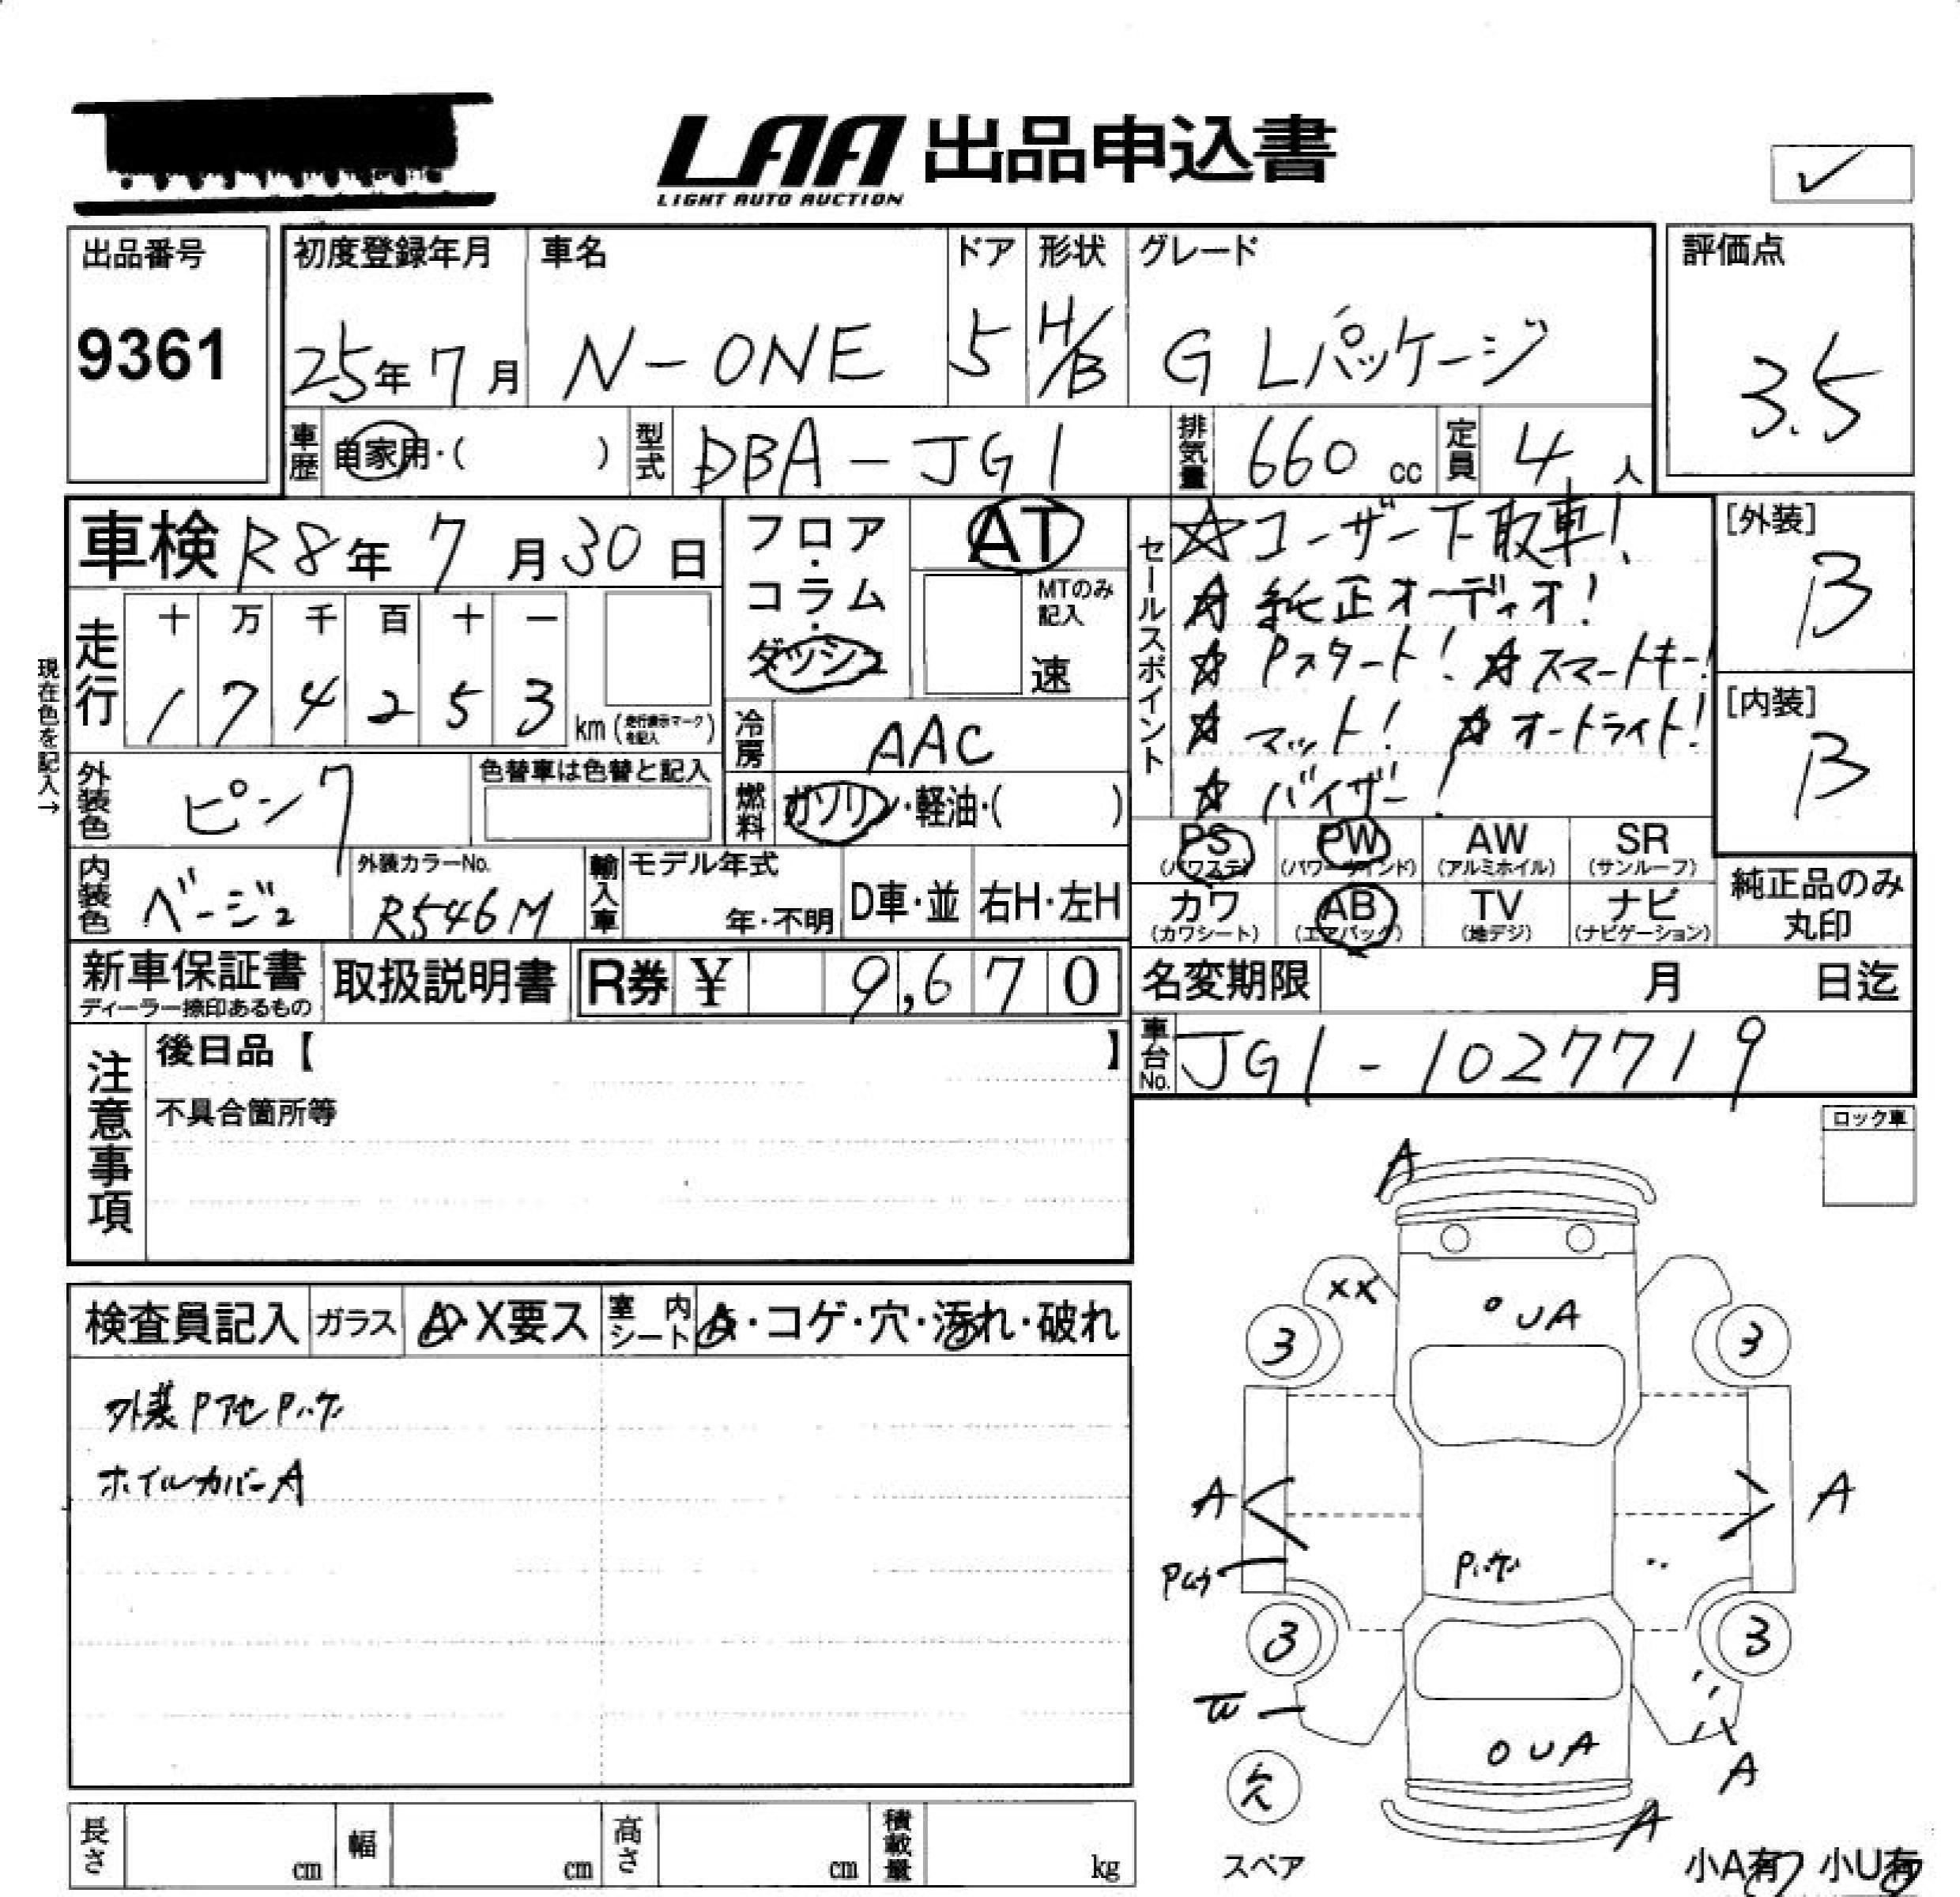 LAA 出品申込書
LIGHT AUTO AUCTION
✓
出品番号
9361
初度登録年月
25年7月
車名
N-ONE
ドア
5
形状
H/B
グレード
G Lパッケージ
評価点
3.5
車歴
自家用・( )
型式
DBA-JG1
排気量
660 cc
定員
4人
車検 R8年 7月30日
フロア・コラム・ダッシュ
AT
MTのみ記入
速
セールスポイント
☆ユーザー下取車!
☆純正オーディオ!
☆Pスタート! ☆スマートキー!
☆マット! ☆オートライト!
☆バイザー!
[外装]
B
[内装]
B
走行
十 万 千 百 十 一
1 7 4 2 5 3
km (走行表示マークを記入)
現在色を記入→
冷房
AAC
燃料
ガソリン・軽油・( )
外装色
ピンク
色替車は色替と記入
内装色
ベージュ
外装カラーNo.
R546M
輸入車
モデル年式
年・不明
D車・並
右H・左H
PS (パワステ)
PW (パワーウインド)
AW (アルミホイル)
SR (サンルーフ)
カワ (カワシート)
AB (エアバック)
TV (地デジ)
ナビ (ナビゲーション)
純正品のみ丸印
新車保証書
ディーラー捺印あるもの
取扱説明書
R券 ¥ 9,670
名変期限
月 日迄
車台No.
JG1-1027719
注意事項
後日品【 】
不具合箇所等
ロック車
検査員記入
ガラス
A・X要ス
室内シート
A・コゲ・穴・汚れ・破れ
外装Pアセ Pハゲ
ホイルカバーA
A
XX
UA
3
3
A
A
Pハゲ
3
3
W
UA
A
A
スペア
小A有 小U有
長さ
cm
幅
cm
高さ
cm
積載量
kg